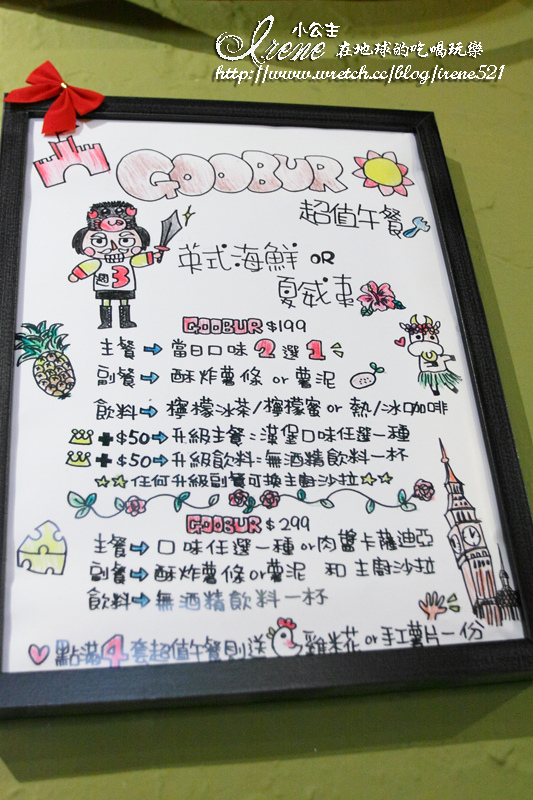 小公主
Irene 在地球的吃喝玩樂
http://www.wretch.cc/blog/irene521
GOOBUR
超值午餐
英式海鮮 OR
夏威夷
3
GOOBUR $199
主餐→當日口味2選1
副餐→酥炸薯條 or 薯泥
飲料→檸檬冰茶/檸檬蜜 or 熱/冰咖啡
+$50→升級主餐:漢堡口味任選一種
+$50→升級飲料:無酒精飲料一杯
☆☆任何升級副餐可換主廚沙拉☆☆
GOOBUR $299
主餐→口味任選一種 or 肉醬卡薩迪亞
副餐→酥炸薯條 or 薯泥 和 主廚沙拉
飲料→無酒精飲料一杯
點滿4套超值午餐則送雞米花 or 手工薯片一份